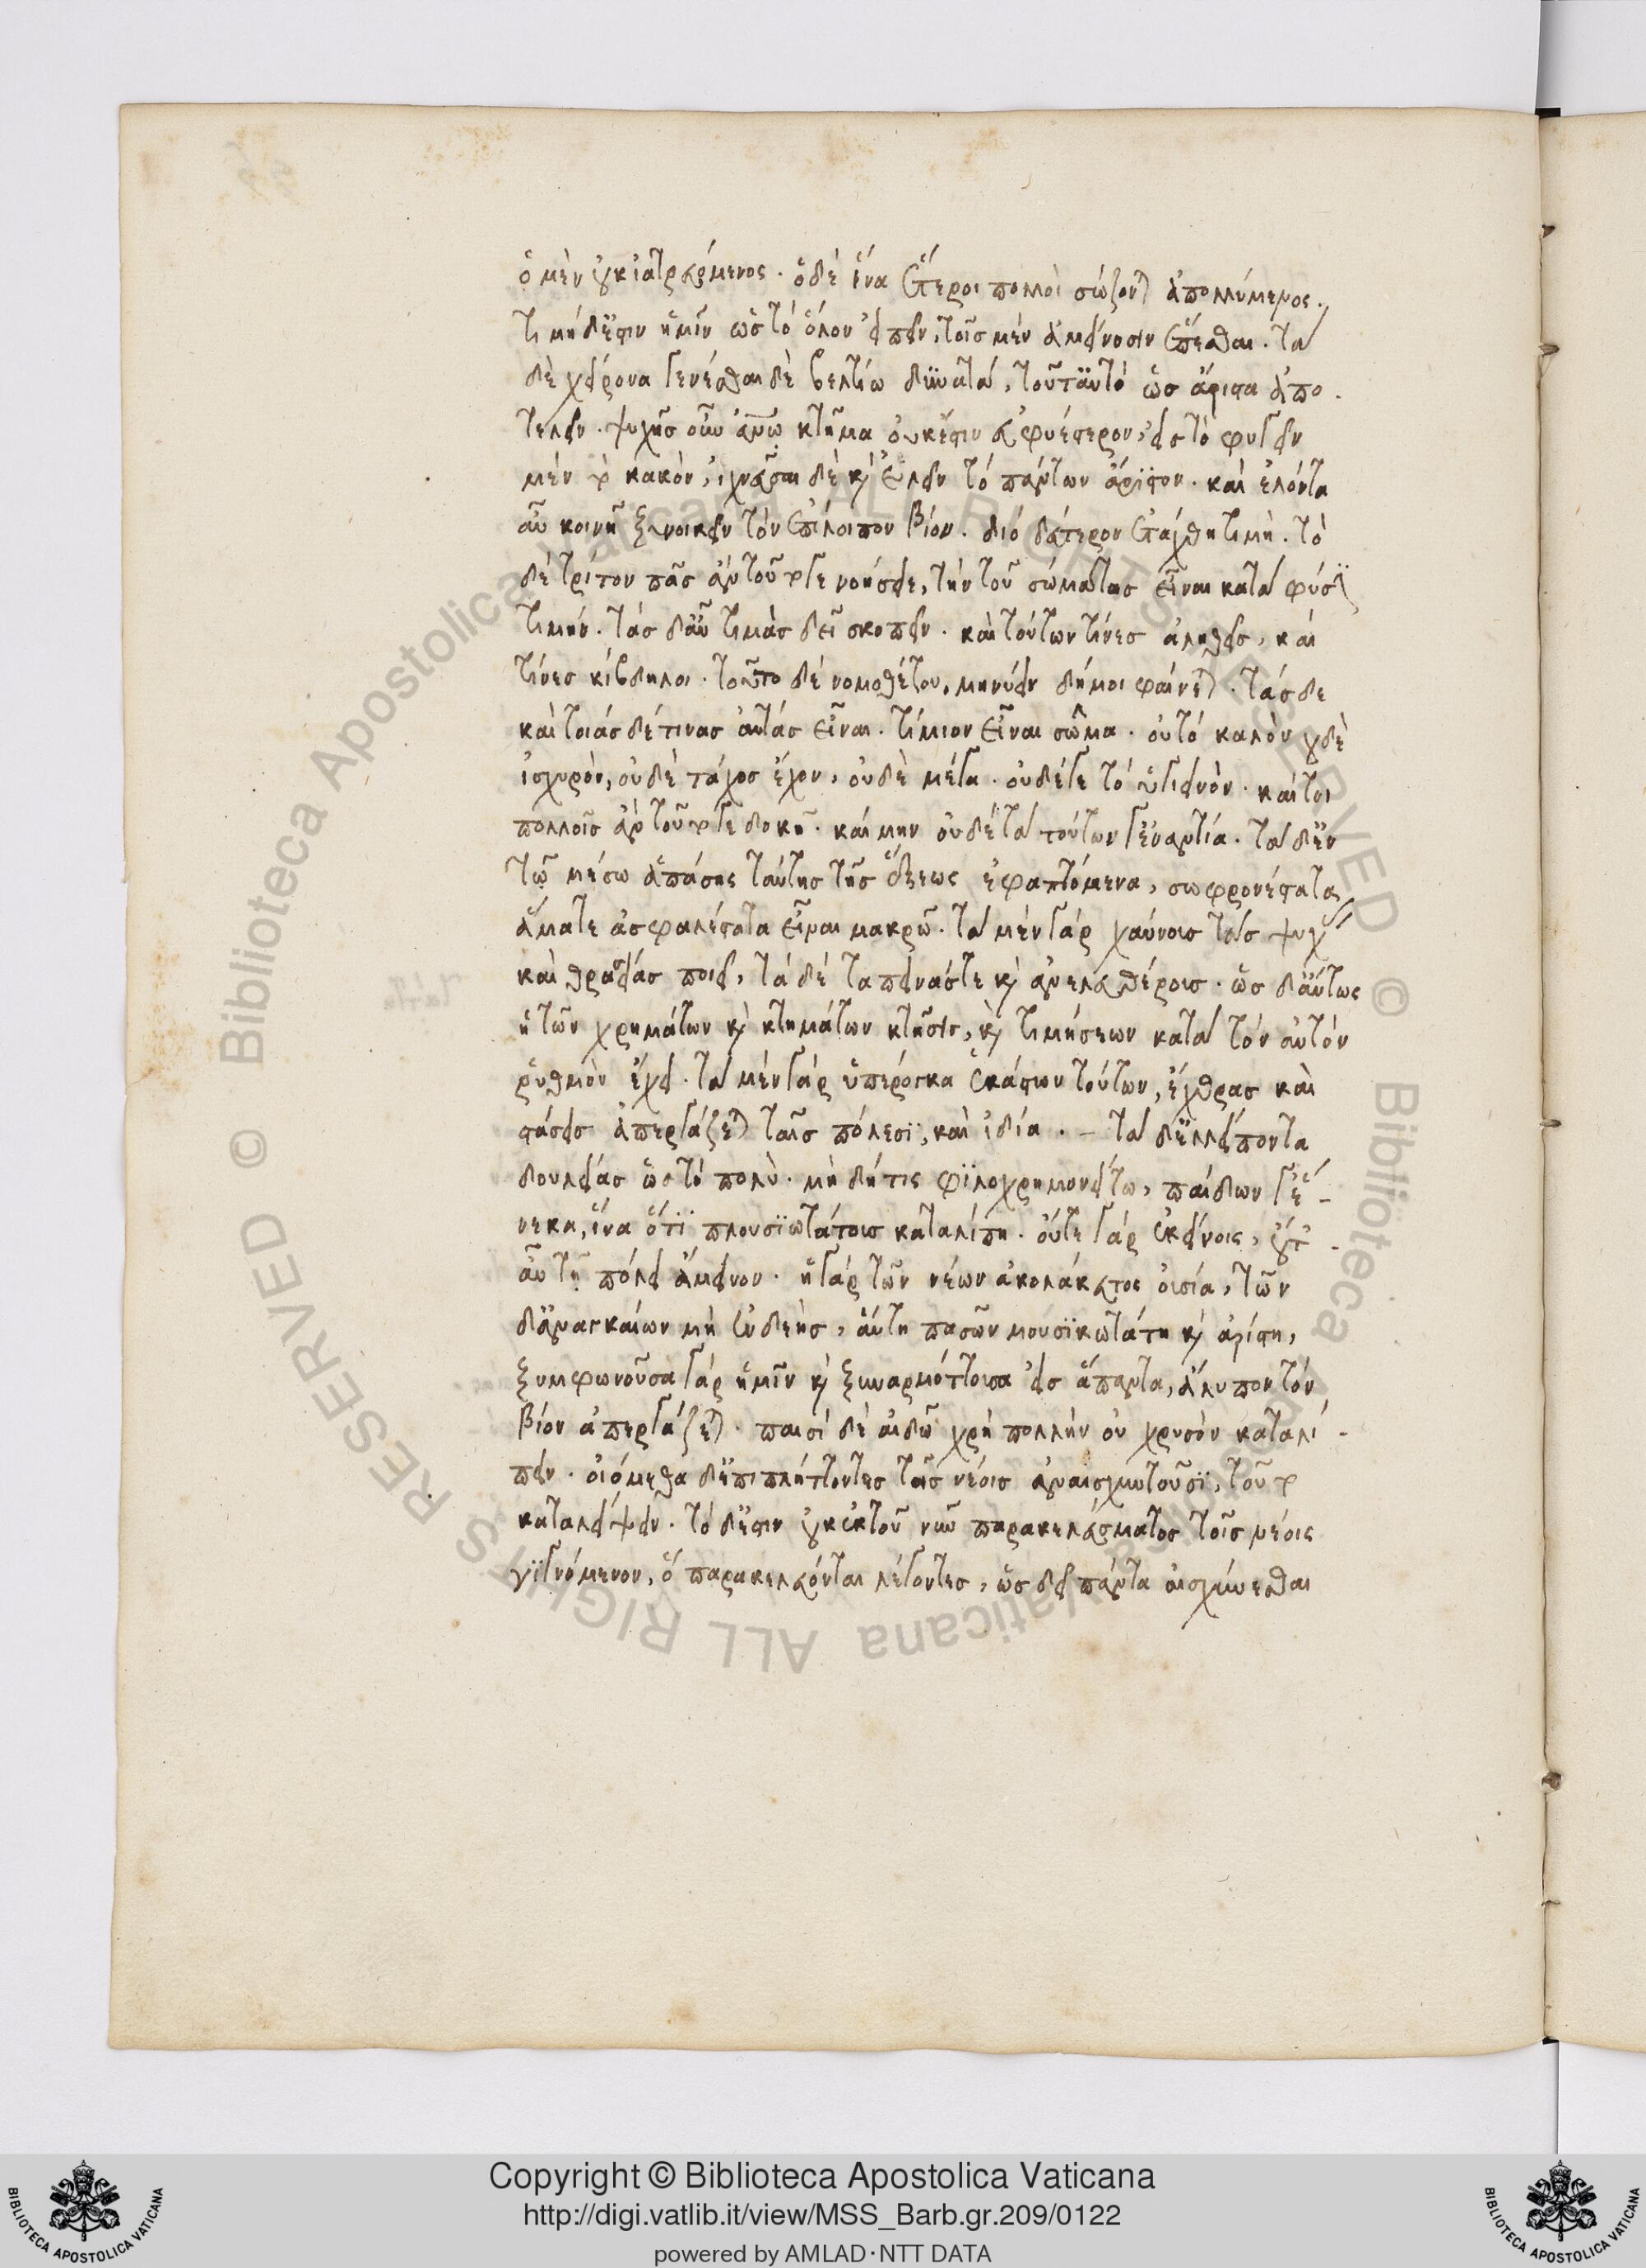 ὁ μὲν οὐκ ἰατρευόμενος. ὁ δὲ ἵνα ἕτεροι πολλοὶ σώζονται ἀπολλύμενος.
τιμὴ δἔστιν ἡμῖν ὡς τὸ ὅλον εἰπεῖν, τοῖς μὲν ἀμείνοσιν ἕπεσθαι. τὰ
δὲ χείρονα γενέσθαι δὲ βελτίω δυνατὰ, τοῦτ' ἀυτὸ ὡς ἄριστα ἀπο.
τελεῖν. ψυχῆς οὖν ἀνῳ κτῆμα ὀυκ ἔστιν εὐφυέστερον, εἰς τὸ φυγεῖν
μὲν τὸ κακὸν, ἰχνεῦσαι δὲ καὶ ἑλεῖν τὸ πάντων ἄριστον. καὶ ἑλόντα
αὖ κοινῆ ξυνοικεῖν τὸν ἐπίλοιπον βίον. διὸ δεύτερον ἐτάχθη τιμή. τὸ
δὲ τρίτον πᾶς ἂν τοῦτό γε νοήσειε, τὴν τοῦ σώματος εἶναι κατὰ φύσϊν
τιμήν. τὰς δ' αὖ τιμὰς δεῖ σκοπεῖν. καὶ τούτων τίνες ἀληθεῖς, καὶ
τίνες κίβδηλοι. τοῦτο δὲ νομοθέτου. μηνύειν δή μοι φαίνεται. τάσδε
καὶ τοιάσδέ τινας αὐτὰς εἶναι. τίμιον εἶναι σῶμα. οὐ τὸ καλὸν οὐδὲ
ἰσχυρὸν, οὐδὲ τάχος ἔχον, οὐδὲ μέγα. οὐδέ γε τὸ ὑγιεινὸν. καίτοι
πολλοῖς ἂν τοῦτό γε δοκῇ. καὶ μην οὐδὲ τὰ τούτων γ' ἐναντία. τὰ δ' ἐν
τῷ μέσω ἁπάσης ταύτης τῆς ἕξεως ἐφαπτόμενα, σωφρονέστατα
ἅμα τε ἀσφαλέστατα εἶναι μακρῷ. τὰ μὲν γὰρ χαύνους τὰς ψυχὰς
καὶ θρασείας ποιεῖ, τὰ δὲ ταπεινάς τε καὶ ἀνελευθέρους. ὡς δ' ἄυτως
ἡ τῶν χρημάτων καὶ κτημάτων κτῆσις, καὶ τιμήσεων κατὰ τὸν αὐτὸν
ῥυθμὸν ἔχει. τὰ μὲν γὰρ ὑπέρογκα ἑκάστων τούτων, ἔχθρας καὶ
στάσεις ἀπεργάζεται ταῖς πόλεσϊ, καὶ ἰδία. – τὰ δ' ἐλλείποντα
δουλείας ὡς τὸ πολὺ. μὴ δή τις φϊλοχρημονείτω, παίδων γ' ἕ–
νεκα, ἵνα ὅτϊ πλουσϊωτάτους καταλίπη. οὔτε γὰρ ἐκείνοις, οὔτε
αὖ τῇ πόλει ἄμεινον. ἡ γὰρ τῶν νέων ἀκολάκευτος οὐσία, τῶν
δ' ἀναγκαίων μὴ ἐνδεὴς, ἄυτη πασῶν μουσϊκωτάτη καὶ ἀρίστη,
ξυμφωνοῦσα γὰρ ἡμῖν καὶ ξυναρμόττουσα εἰς ἅπαντα, ἄλυπον τὸν
βίον ἀπεργάζεται. παισὶ δὲ αἰδῶ χρὴ πολλὴν οὐ χρυσὸν καταλι–
πεῖν. οἰόμεθα δ' ἐπιπλήττοντες τοῖς νέοις ἀναισχυντοῦσϊ, τοῦτο
καταλείψειν. τὸ δ' ἔστιν οὐκ ἐκ τοῦ νῦν παρακελεύσματος τοῖς νέοις
γϊγνόμενον, ὃ παρακελεύονται λέγοντες, ὡς δεῖ πάντα αἰσχύνεσθαι